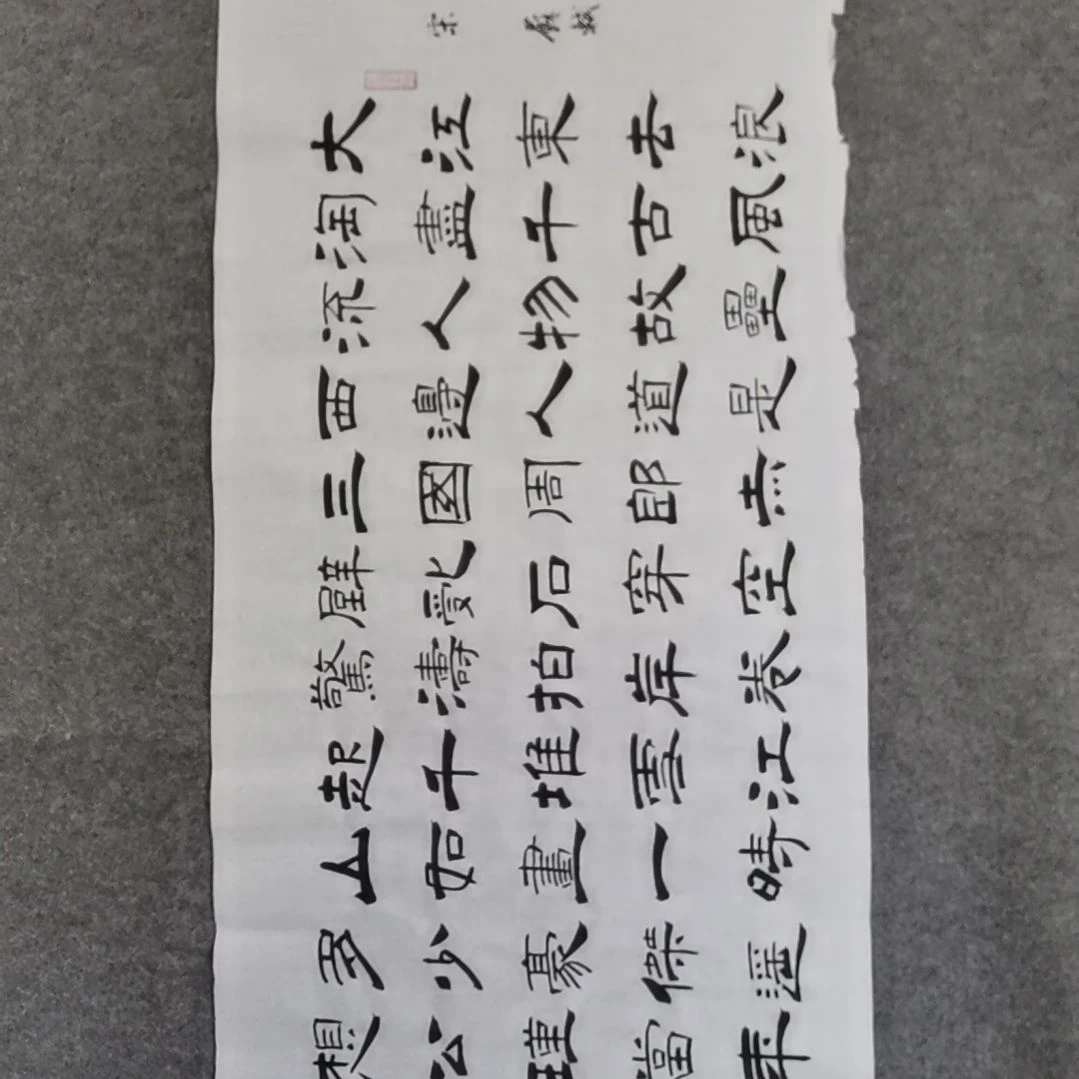 宋 蘇軾
大江東去浪
淘盡千古風
流人物故壘
西邊人道是
三國周郎赤
壁亂石穿空
驚濤拍岸卷
起千堆雪江
山如畫一時
多少豪傑遥
想公瑾當年